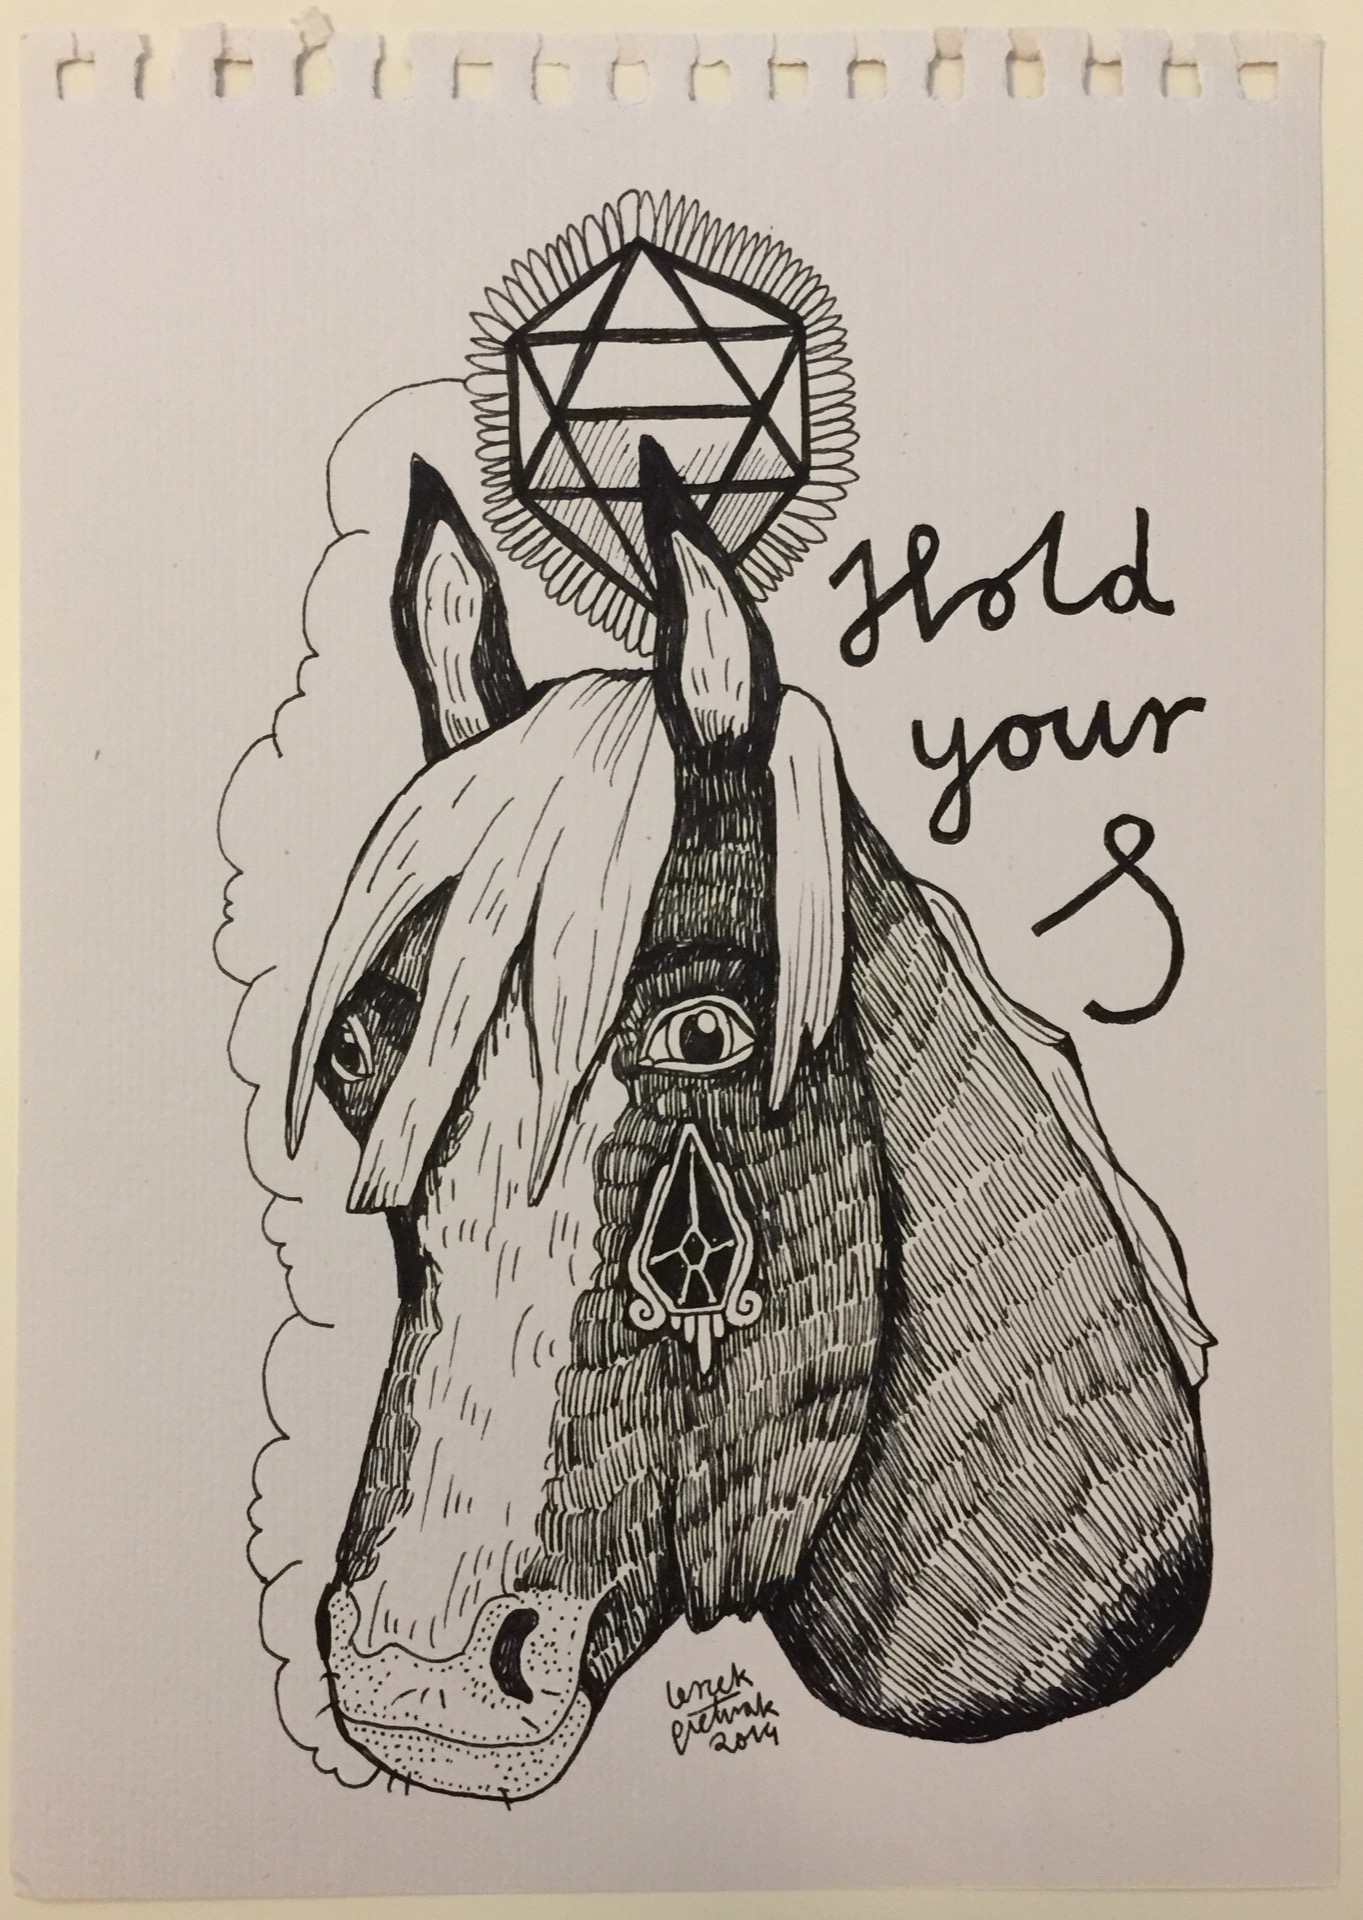 Hold
your
S
leszek
pietrzak
2014